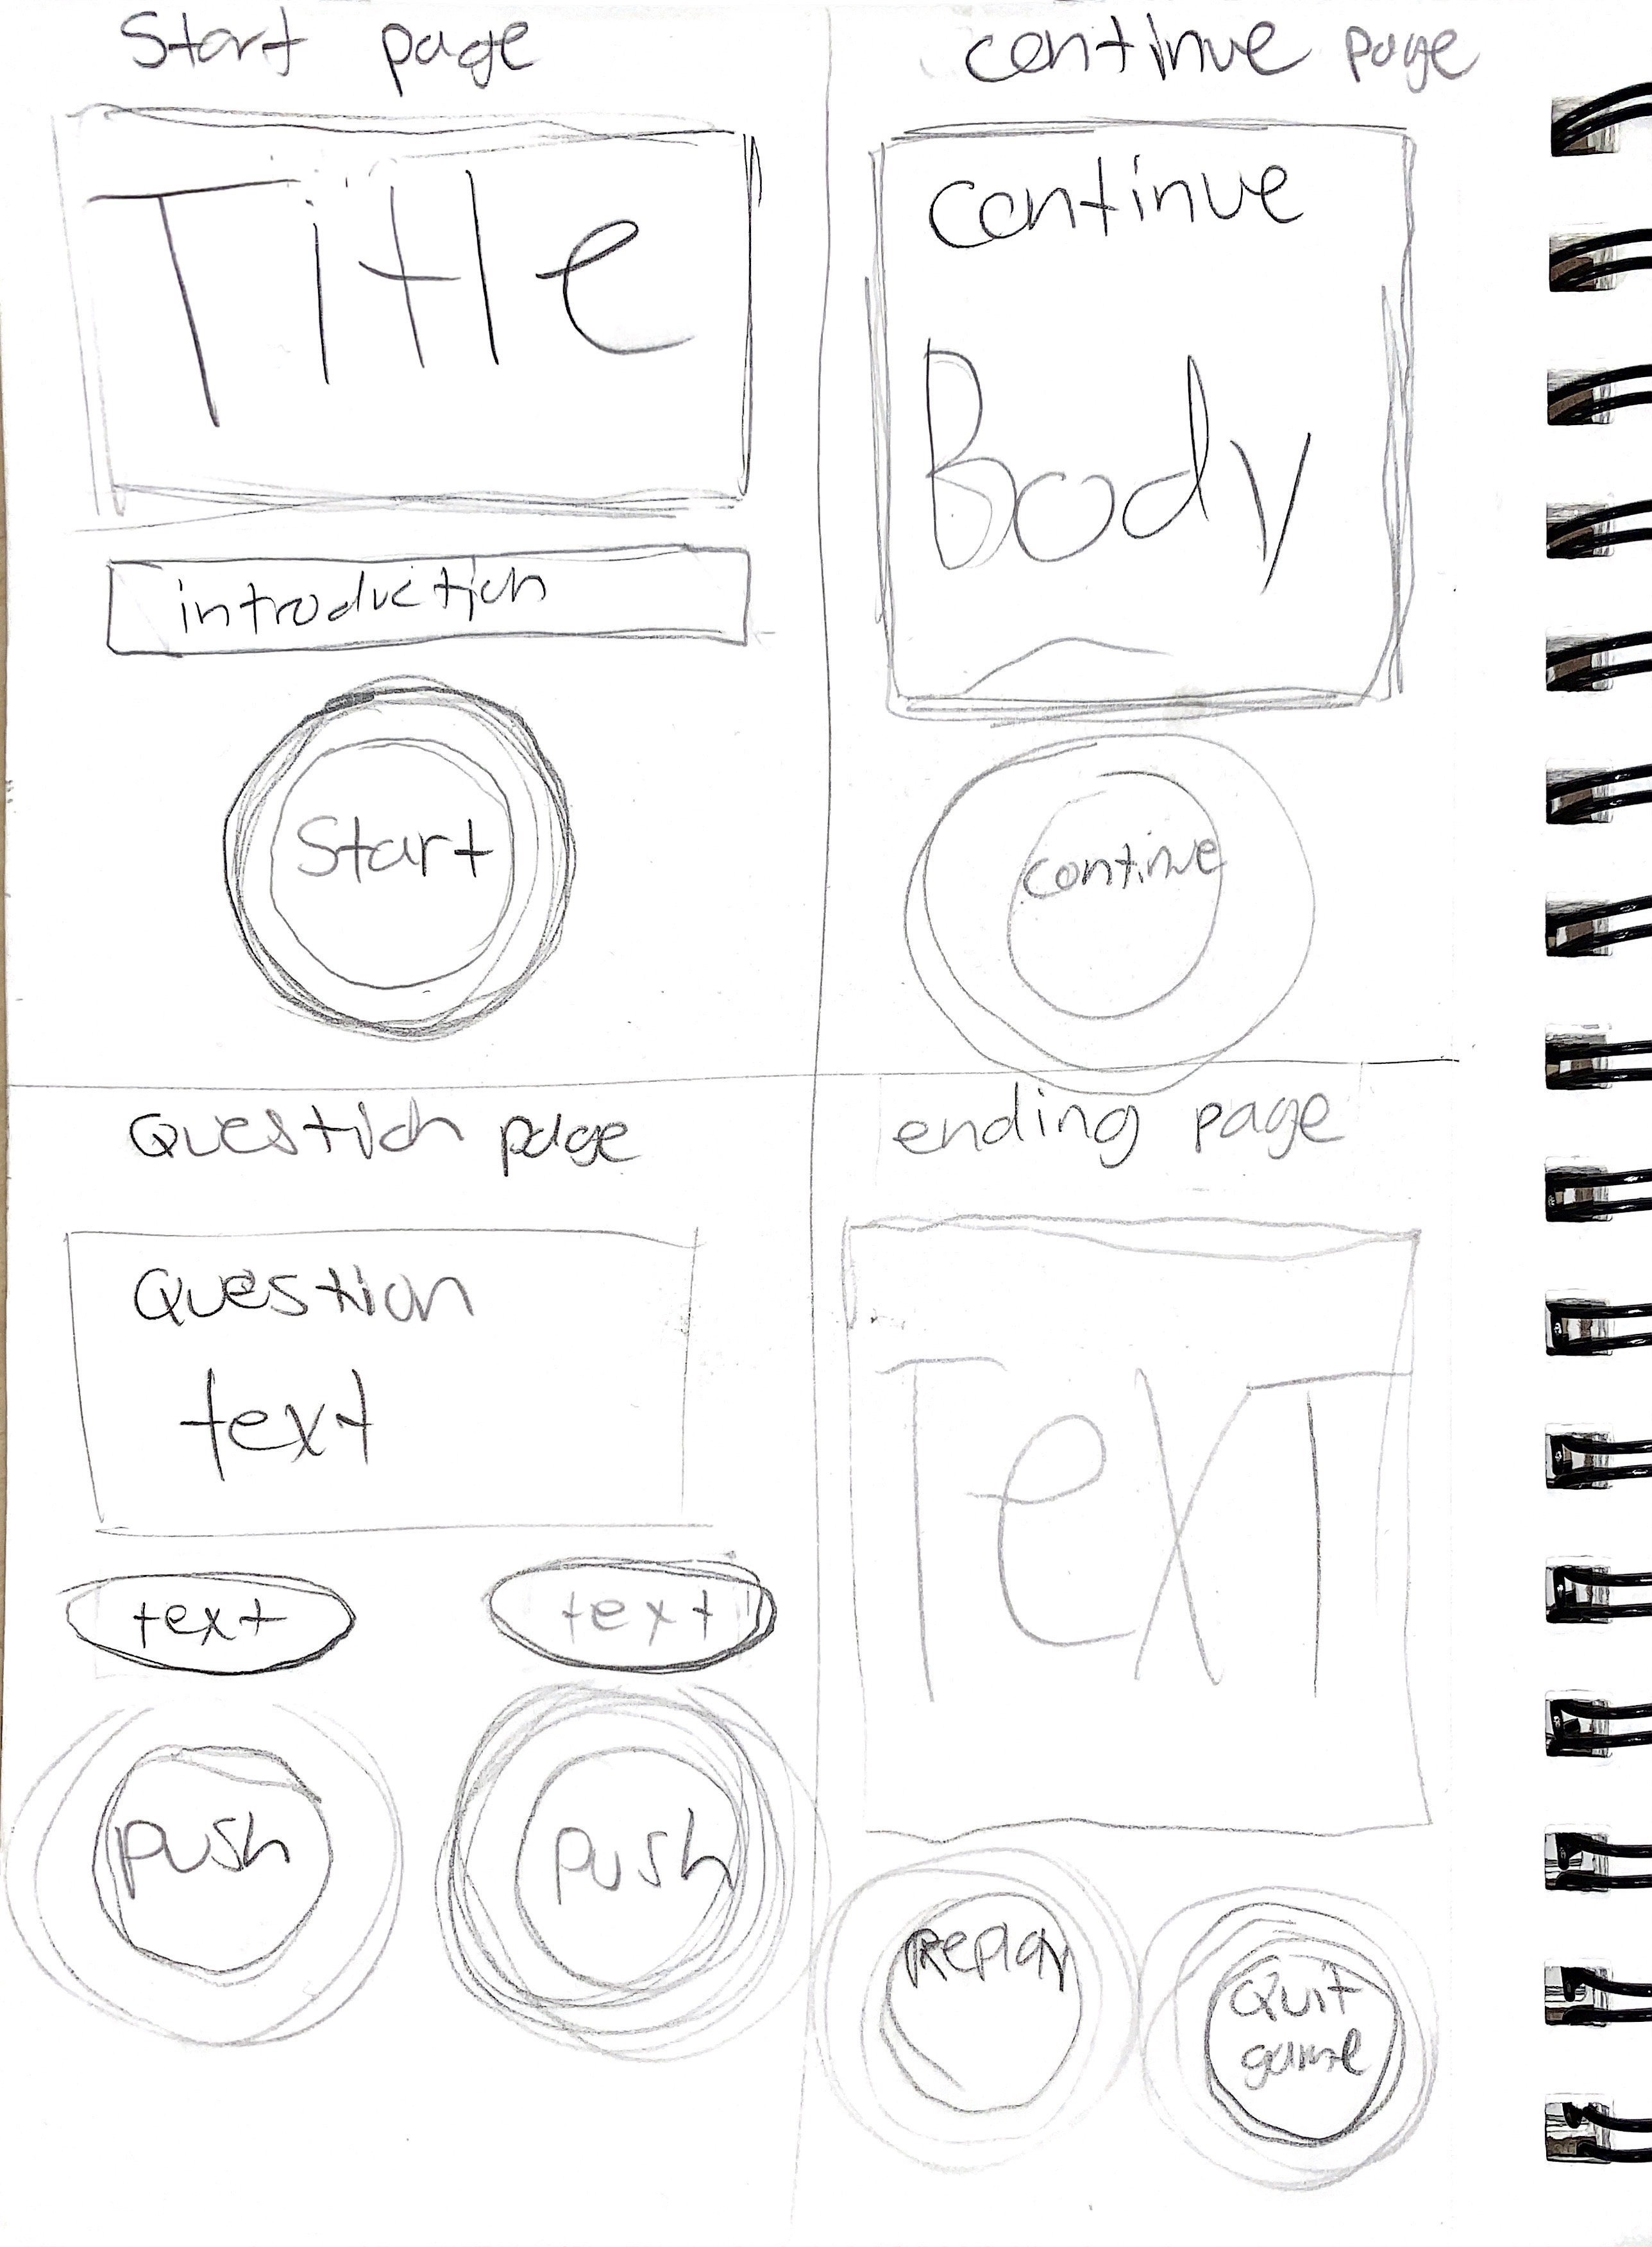 Start page
Title
introduction
Start
continue page
continue
Body
continue
Question page
Question
text
text
text
push
push
ending page
TeXT
Replay
Quit
game